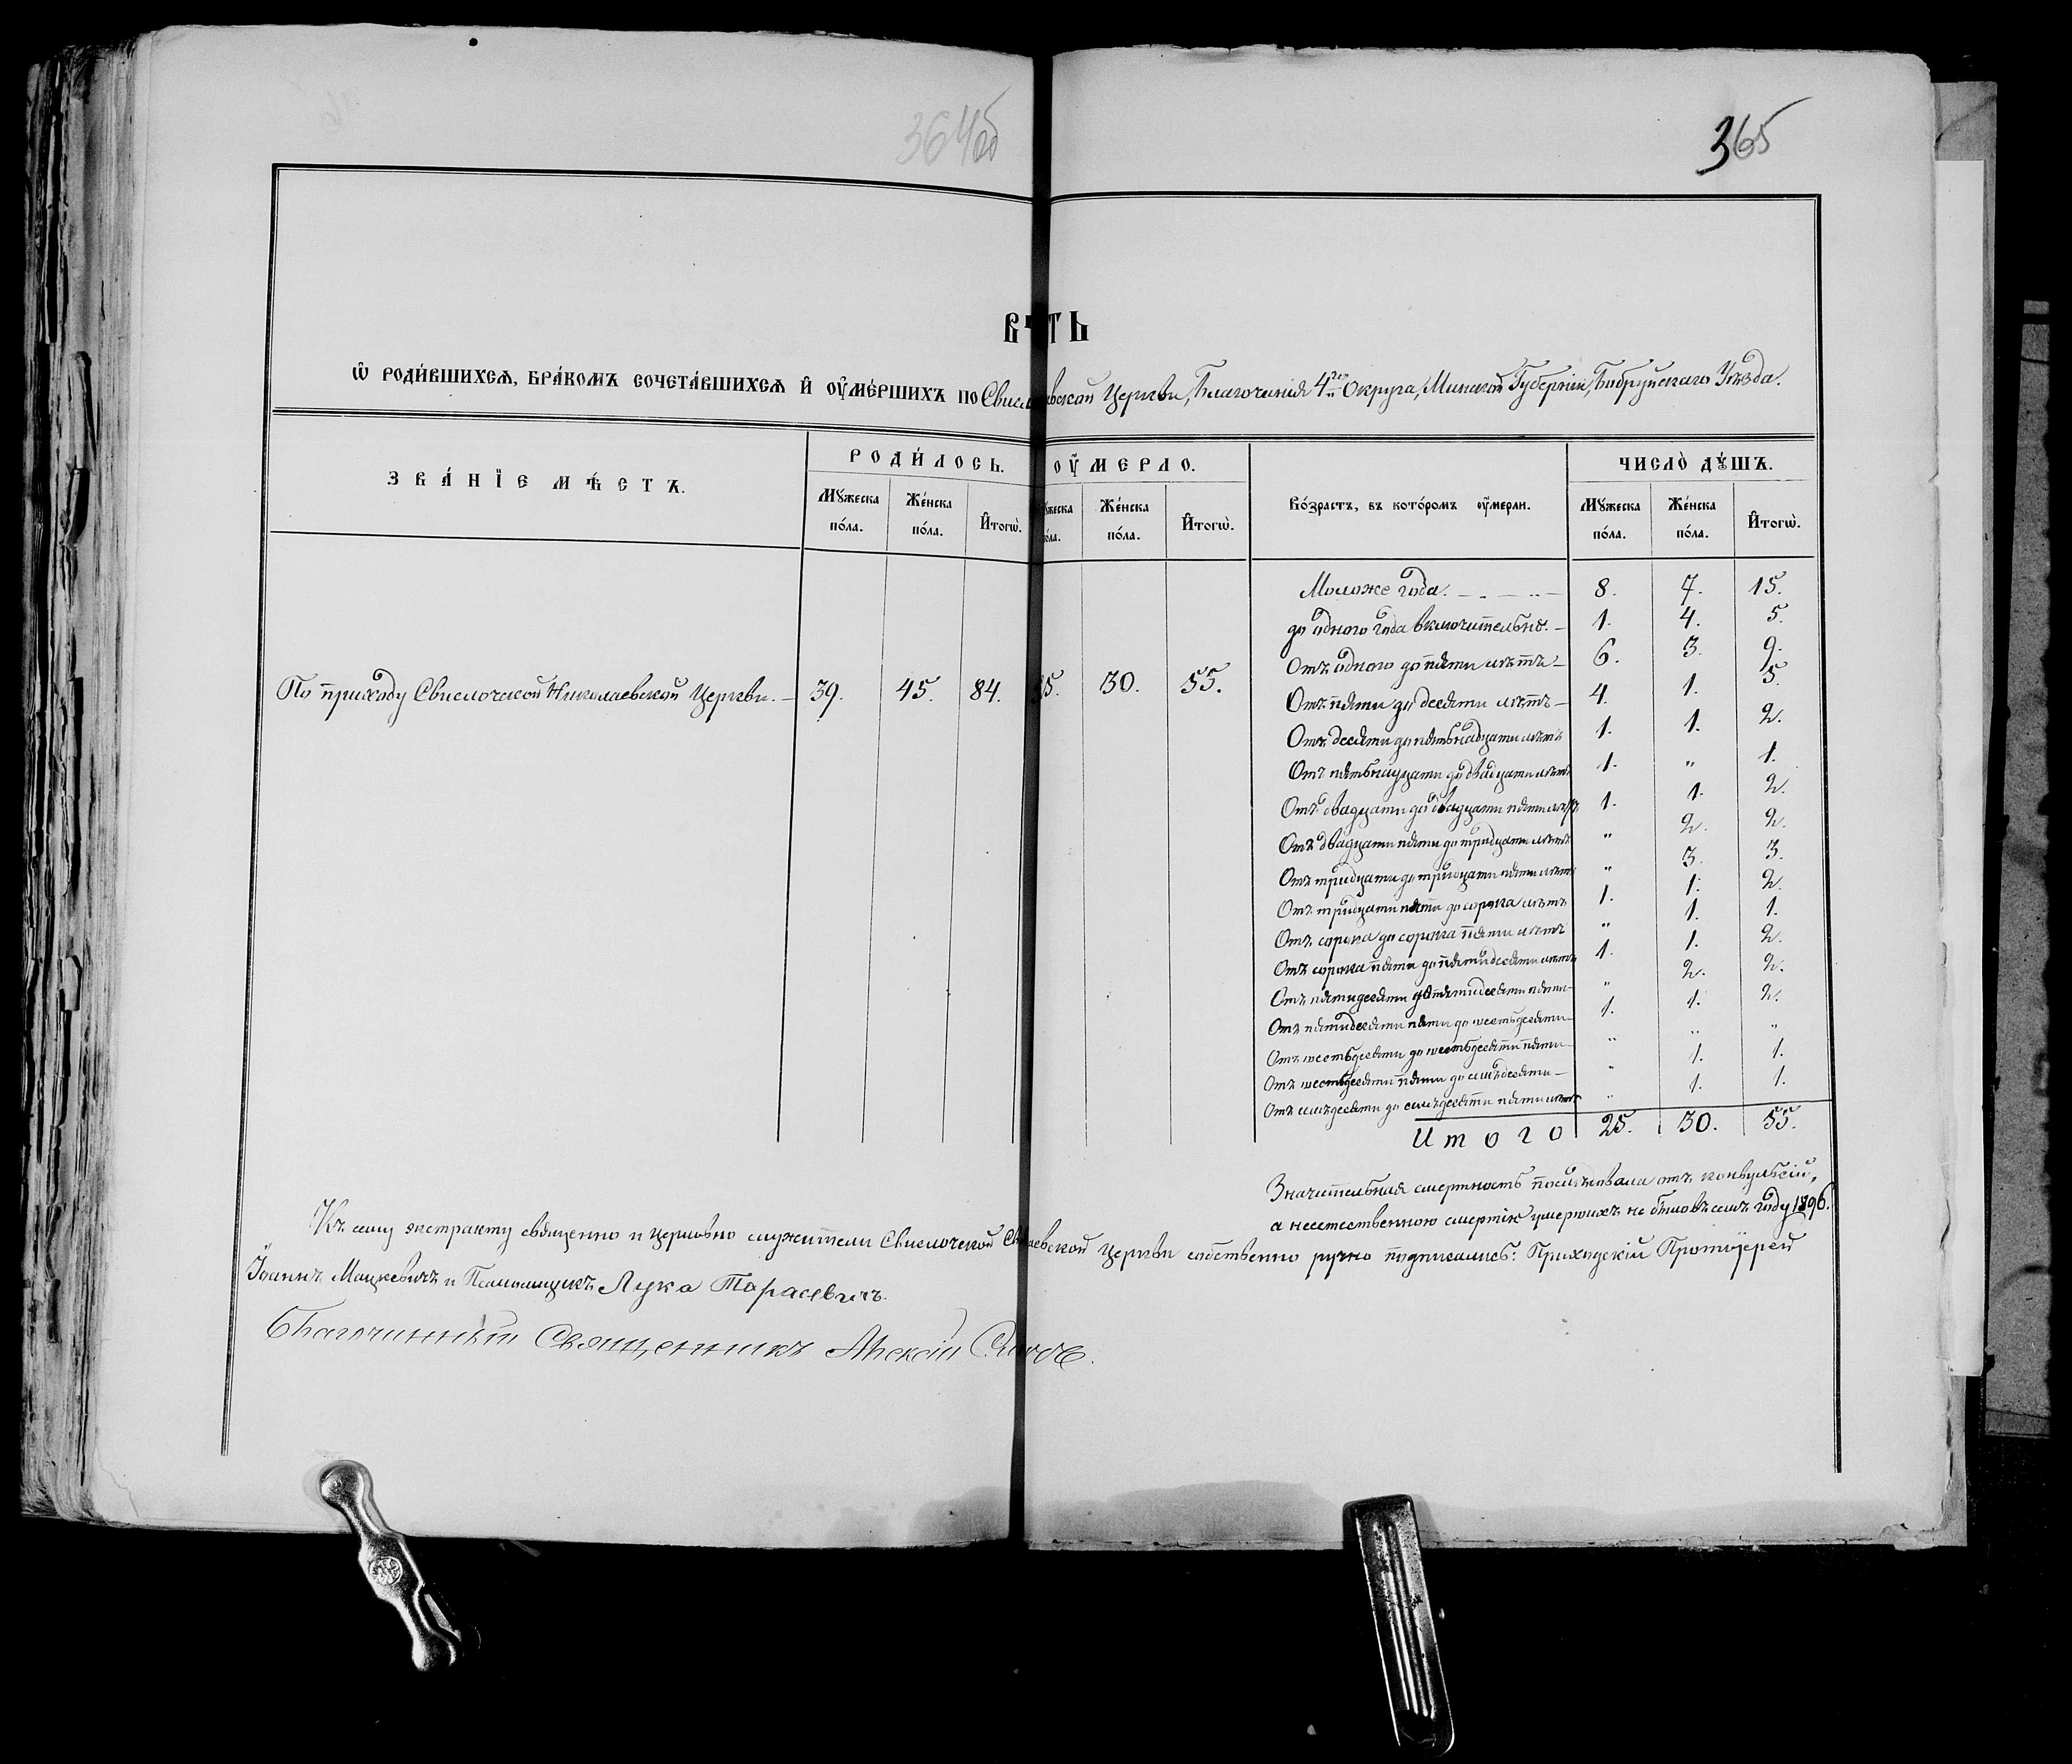 364об
365
Ѿ РОДИ́ВШИХСѦ, БРА́КОМЪ СОЧЕТА́ВШИХСѦ И҆ ОУ҆МЕ́РШИХЪ ПО Церкви, Благочинія 4го Округа, Минской Губерніи, Бобруйскаго Уѣзда.
ЗВА́НЇЕ МѢ́СТЪ.
РОДИ́ЛОСЬ.
ОУ҆МЕРЛО.
Во́зрастъ, въ кото́ромъ оу҆мерли.
ЧИСЛО̀ ДꙊ́ШЪ.
Мꙋжеска по́ла.
Же́нска по́ла.
И҆тогѡ̀.
Же́нска по́ла.
И҆тогѡ̀.
Мꙋжеска по́ла.
Же́нска по́ла.
И҆тогѡ̀.
По приходу Свислочской Николаевской Церкви. — 39. 45. 84. 30. 55.
Моложе года. — 8. 7. 15.
до одного года включительно. — 1. 4. 5.
Отъ одного до пяти лѣтъ — 6. 3. 9.
Отъ пяти до десяти лѣтъ — 4. 1. 5.
Отъ десяти до пятьнадцати лѣтъ 1. 1. 2.
Отъ пятьнадцати до двадцати лѣтъ 1. " 1.
Отъ двадцати до двадцати пяти лѣтъ 1. 1. 2.
Отъ двадцати пяти до тридцати лѣтъ " 2. 2.
Отъ тридцати до тридцати пяти лѣтъ " 3. 3.
Отъ тридцати пяти до сорока лѣтъ 1. 1. 2.
Отъ сорока до сорока пяти лѣтъ " 1. 1.
Отъ сорока пяти до пятидесяти лѣтъ 1. 1. 2.
Отъ пятидесяти до пятидесяти пяти — " 2. 2.
Отъ пятидесяти пяти до шестьдесяти — 1. 1. 2.
Отъ шестьдесяти до шестьдесяти пяти — " " "
Отъ шестьдесяти пяти до семьдесяти — " 1. 1.
Отъ семьдесяти до семьдесяти пяти лѣтъ " 1. 1.
Итого 25. 30. 55.
Значительная смертность послѣдовала отъ конвульсій,
а неестественною смертію умершихъ не было въ семъ году 1896.
Къ сему экстракту священно и церковно служители Свислочской Церкви собственно ручно подписались: Приходскій Протоіерей
Іоаннъ Мацкевичъ и Псаломщикъ Лука Тарасевичъ.
Благочинный Священникъ Алексій